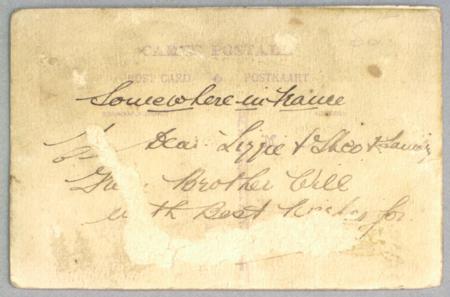 CARTE POSTALE
POST CARD POSTKAART
Somewhere in France
To Dear Lizzie & Theo & Family
From Brother Will
with Best Wishes for